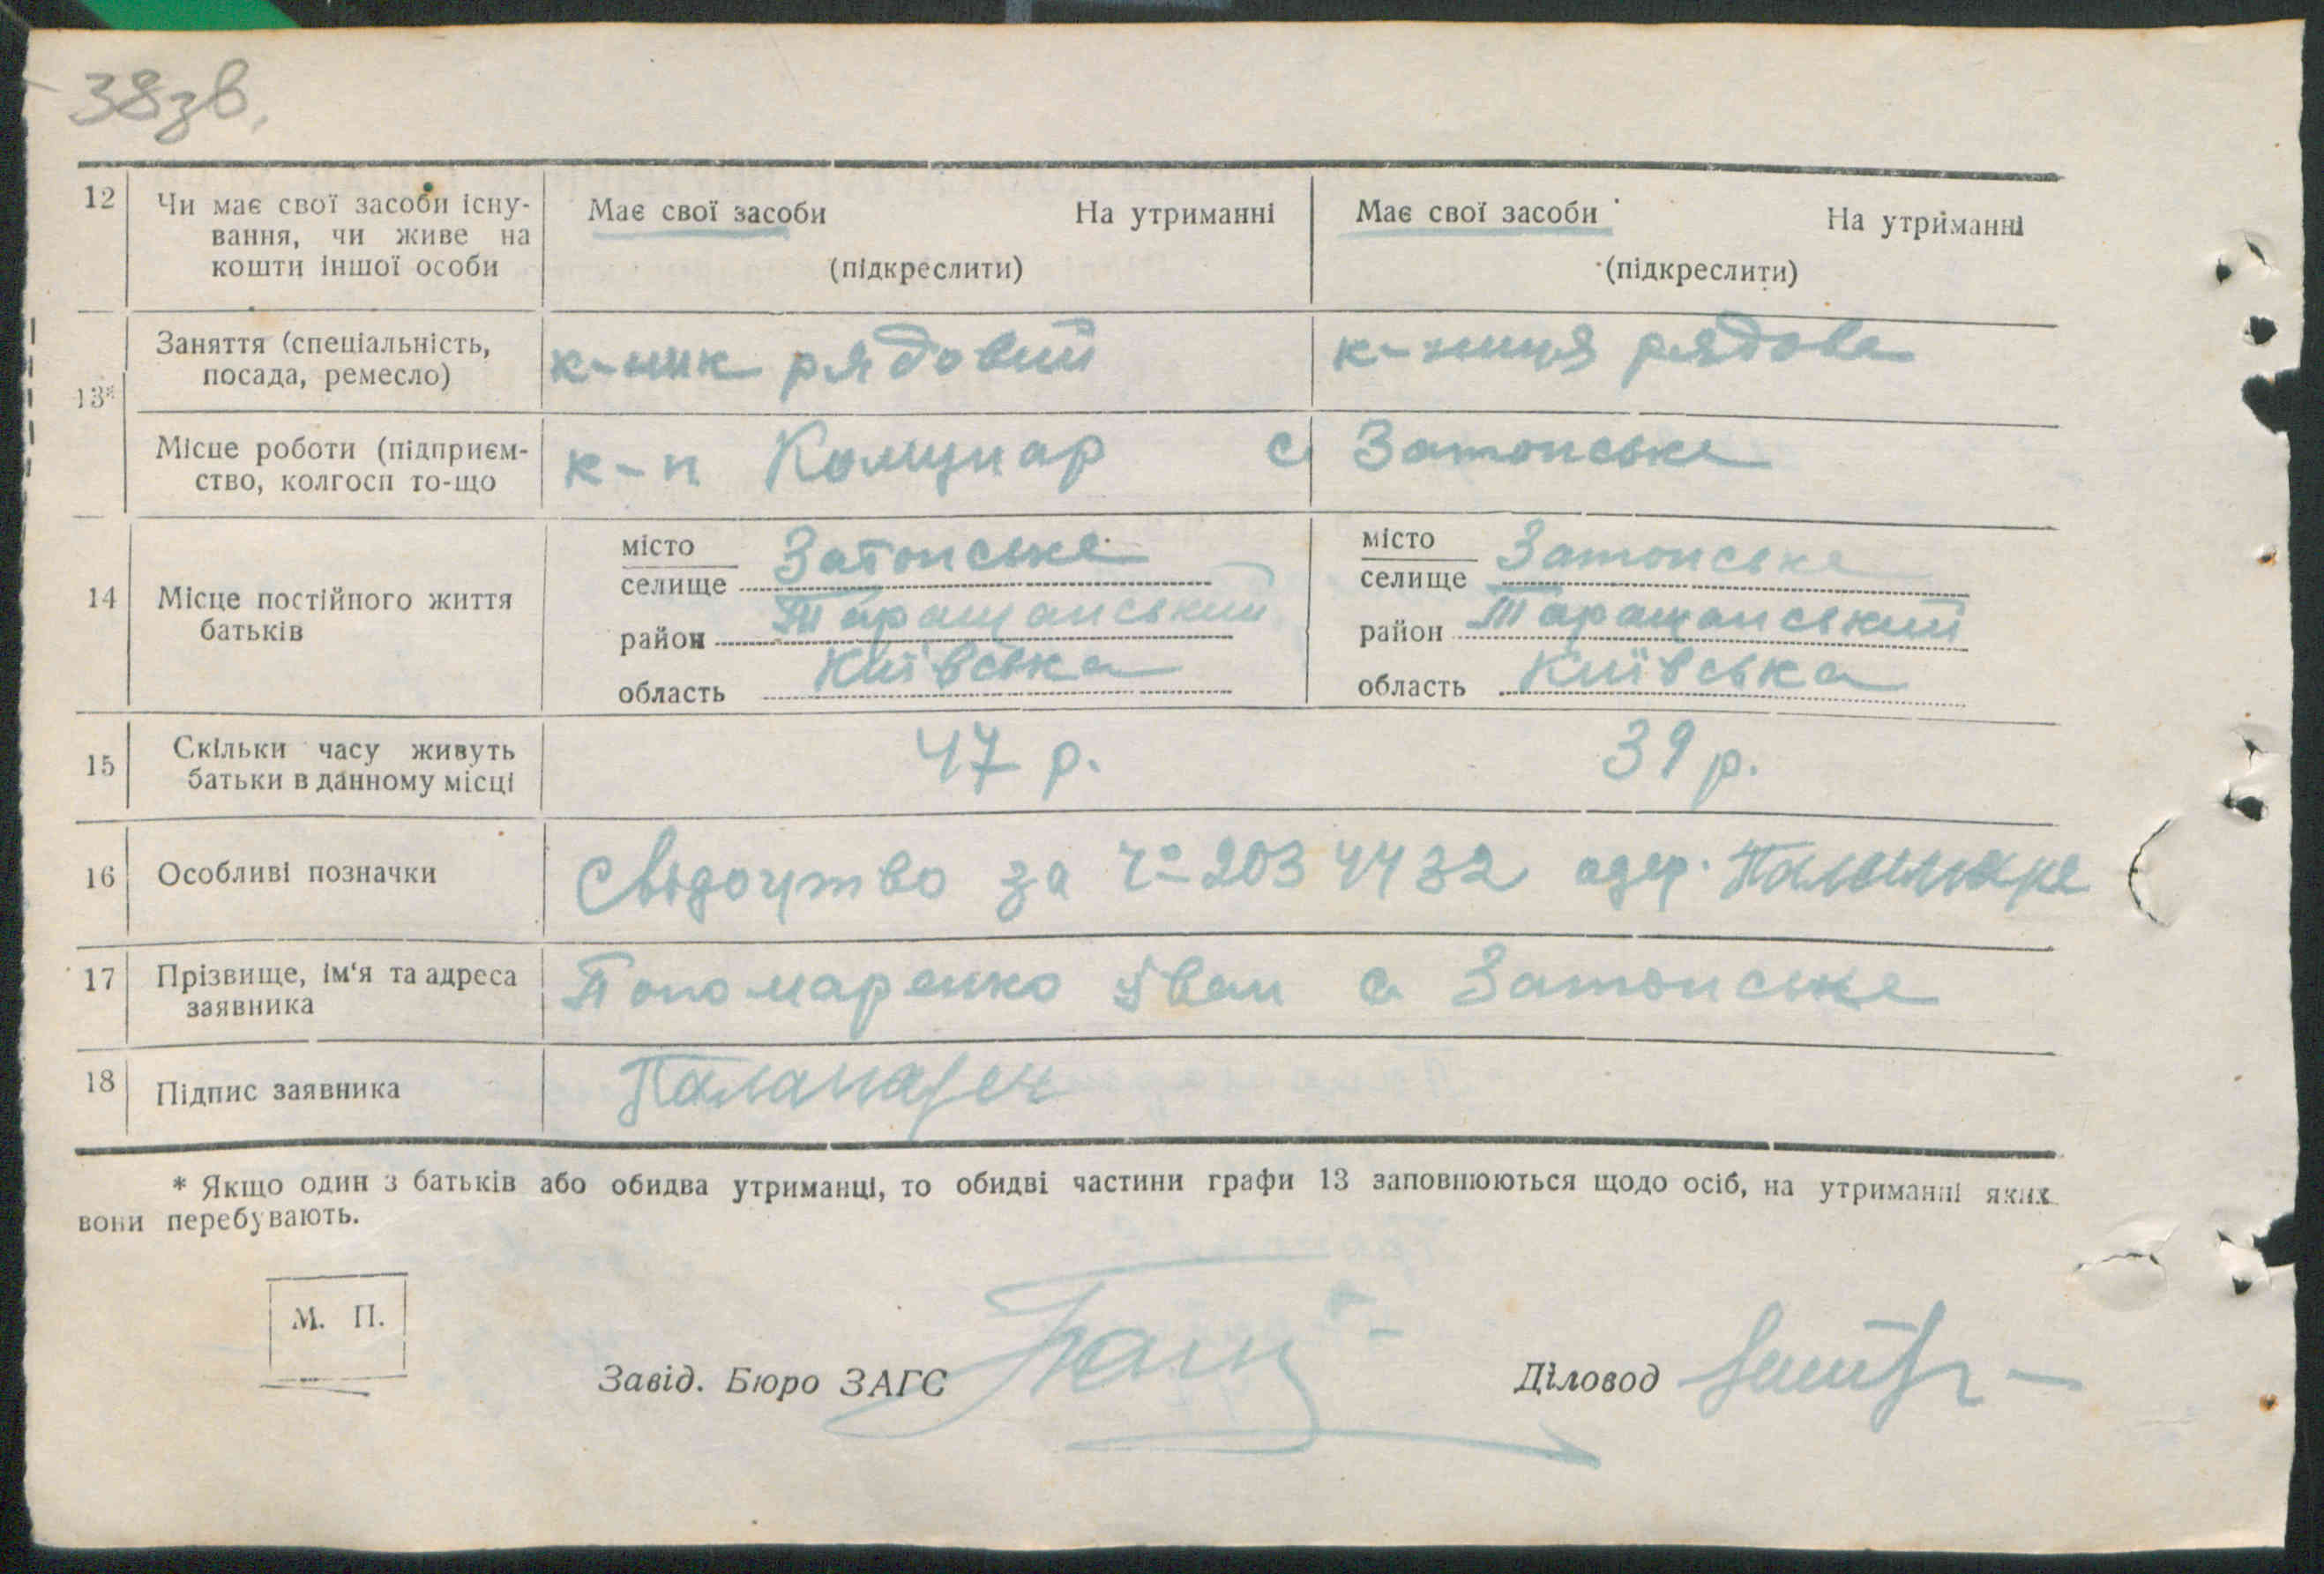 38зв.
12 Чи має свої засоби існу-
вання, чи живе на
кошти іншої особи
Має свої засоби На утриманні
(підкреслити)
Має свої засоби На утриманні
(підкреслити)
13*
Заняття (спеціальність,
посада, ремесло)
к-ник рядовий
к-ниця рядова
Місце роботи (підприєм-
ство, колгосп то-що
к-п Комунар с Затонське
14 Місце постійного життя
батьків
місто
селище Затонське
район Таращанський
область Київська
місто
селище Затонське
район Таращанський
область Київська
15 Скільки часу живуть
батьки в данному місці
47 р.
39 р.
16 Особливі позначки
Свідоцтво за 2034432 одер.
17 Прізвище, ім'я та адреса
заявника
Пономаренко Іван с Затонське
18 Підпис заявника
* Якщо один з батьків або обидва утриманці, то обидві частини графи 13 заповнюються щодо осіб, на утриманні яких
вони перебувають.
М. П.
Завід. Бюро ЗАГС
Діловод